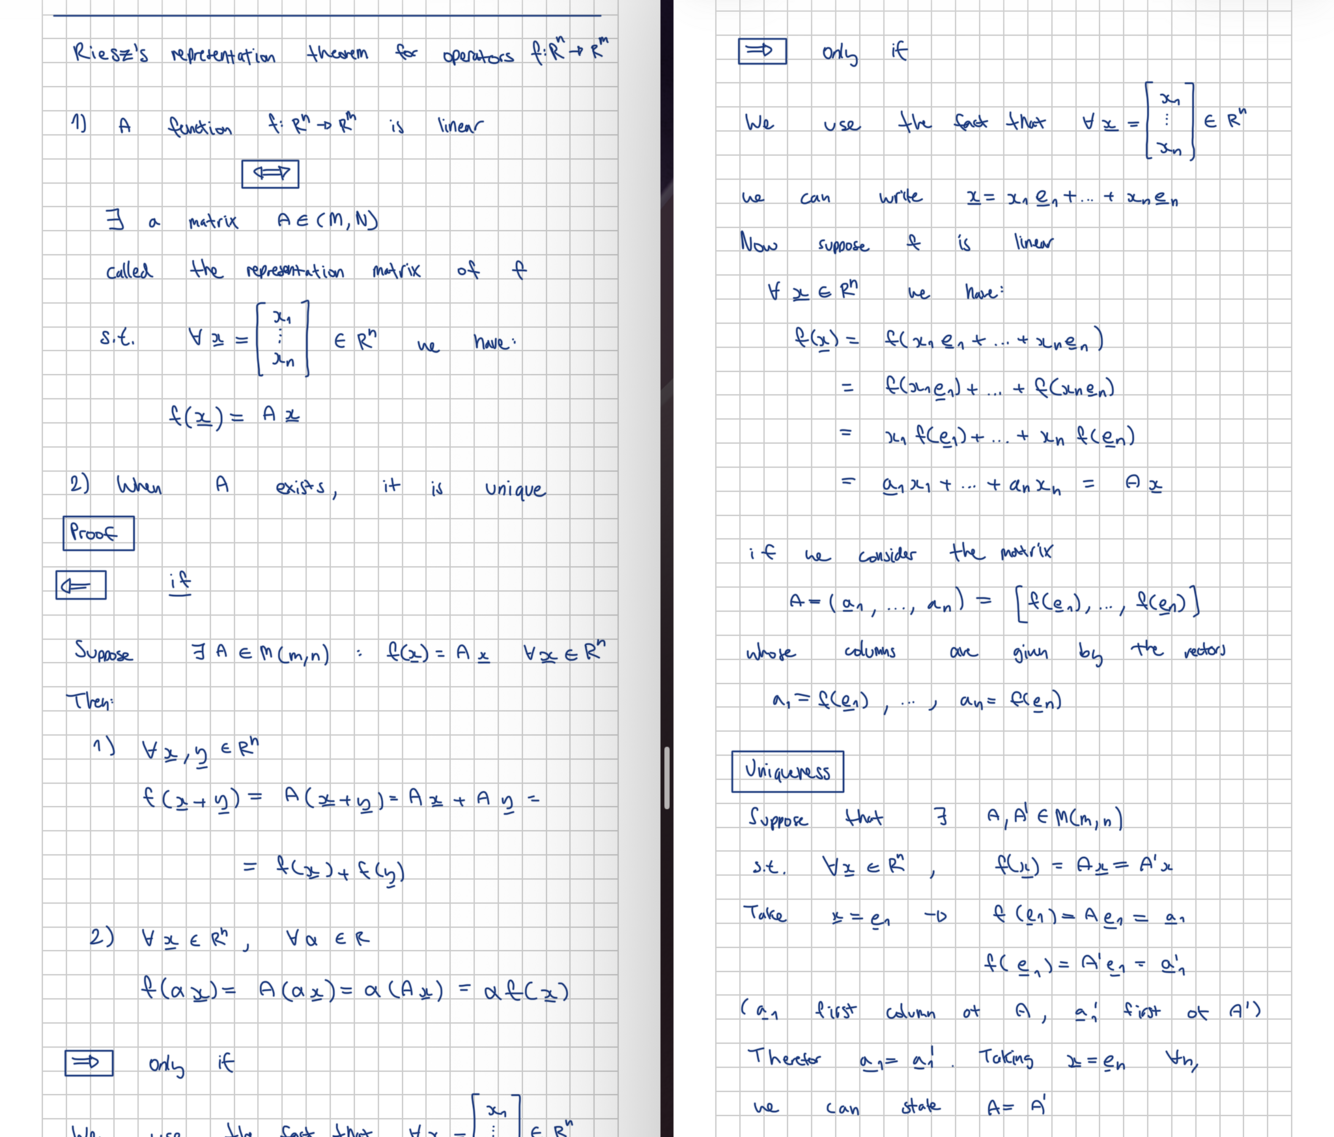 Riesz's representation theorem for operators f: Rⁿ → Rᵐ
1) A function f: Rⁿ → Rᵐ is linear
⟺
∃ a matrix A ∈ (M, N)
called the representation matrix of f
s.t. ∀ x̲ = [x₁ ⋮ xₙ] ∈ Rⁿ we have:
f(x̲) = A x̲
2) When A exists, it is unique
Proof
⇐ if
Suppose ∃ A ∈ M(m,n) : f(x̲) = A x̲ ∀ x̲ ∈ Rⁿ
Then:
1) ∀ x̲, y̲ ∈ Rⁿ
f(x̲+y̲) = A(x̲+y̲) = A x̲ + A y̲ =
= f(x̲) + f(y̲)
2) ∀ x̲ ∈ Rⁿ, ∀ α ∈ R
f(αx̲) = A(αx̲) = α(Ax̲) = αf(x̲)
⇒ only if
We use the fact that ∀ x̲ = [x₁ ⋮ ] ∈ Rⁿ
⇒ only if
We use the fact that ∀ x̲ = [x₁ ⋮ xₙ] ∈ Rⁿ
we can write x̲ = x₁e̲₁ + ... + xₙe̲ₙ
Now suppose f is linear
∀ x̲ ∈ Rⁿ we have:
f(x̲) = f(x₁e̲₁ + ... + xₙe̲ₙ)
= f(x₁e̲₁) + ... + f(xₙe̲ₙ)
= x₁ f(e̲₁) + ... + xₙ f(e̲ₙ)
= a̲₁x₁ + ... + aₙxₙ = A x̲
if we consider the matrix
A = (a̲₁, ..., aₙ) = [f(e̲₁), ..., f(e̲ₙ)]
whose columns are given by the vectors
a₁ = f(e̲₁), ..., aₙ = f(e̲ₙ)
Uniqueness
Suppose that ∃ A, A' ∈ M(m,n)
s.t. ∀ x̲ ∈ Rⁿ, f(x̲) = Ax̲ = A'x
Take x̲ = e̲₁ → f(e̲₁) = Ae̲₁ = a̲₁
f(e̲₁) = A'e̲₁ = a̲'₁
(a̲₁ first column of A, a̲₁' first of A')
Therefor a̲₁ = a̲₁'. Taking x̲ = e̲ₙ ∀n,
we can state A = A'